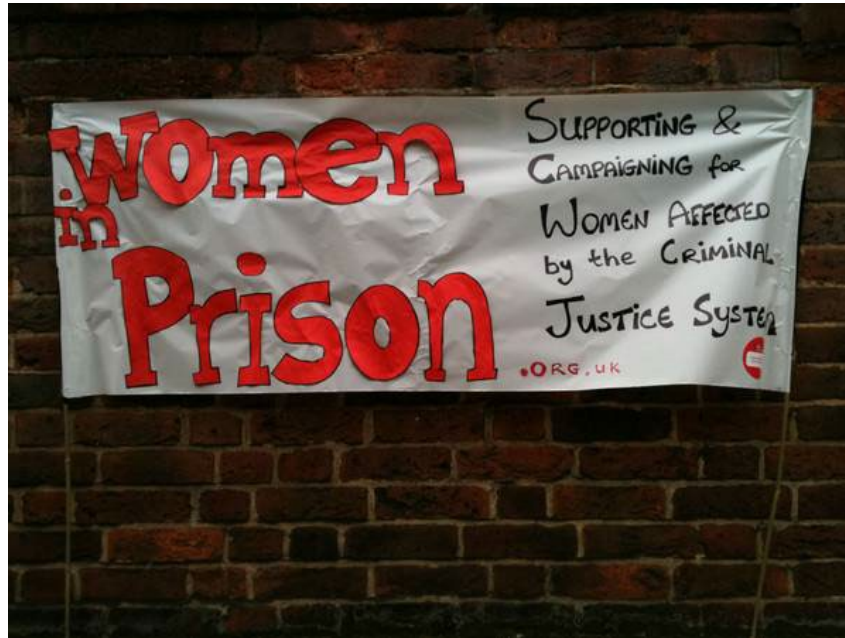 women
in
Prison
.ORG.UK
SUPPORTING &
CAMPAIGNING for
WOMEN AFFECTED
by the CRIMINAL
JUSTICE SYSTEM